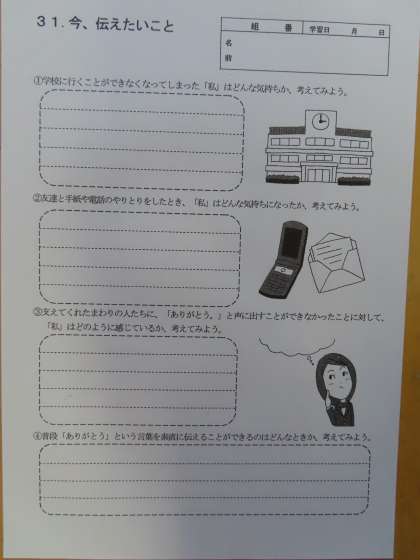 ３１．今、伝えたいこと
組 番 学習日 月 日
名
前
①学校に行くことができなくなってしまった「私」はどんな気持ちか、考えてみよう。
②友達と手紙や電話のやりとりをしたとき、「私」はどんな気持ちになったか、考えてみよう。
③支えてくれたまわりの人たちに、「ありがとう。」と声に出すことができなかったことに対して、
「私」はどのように感じているか、考えてみよう。
④普段「ありがとう」という言葉を素直に伝えることができるのはどんなときか、考えてみよう。